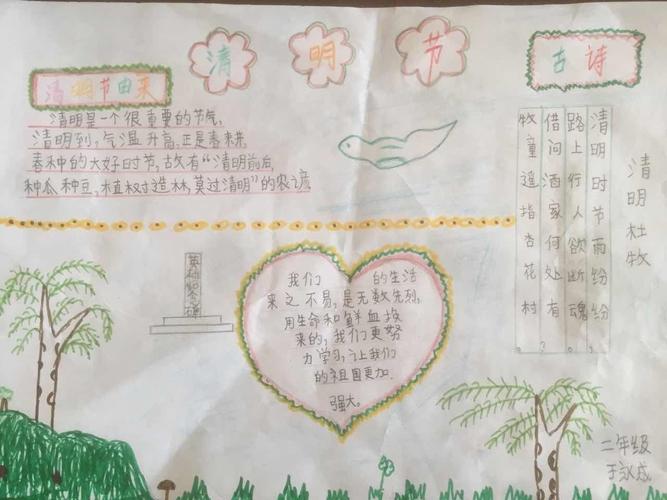 清明节
清明节由来
清明是一个很重要的节气,
清明到,气温升高,正是春耕
春种的大好时节,故有“清明前后,
种瓜种豆。植树造林,莫过清明”的农谚
古诗
清明 杜牧
清明时节雨纷纷
路上行人欲断魂。
借问酒家何处有?
牧童遥指杏花村。
我们 的生活
来之不易,是无数先烈,
用生命和鲜血换
来的,我们更努
力学习,让我们
的祖国更加
强大。
二年级